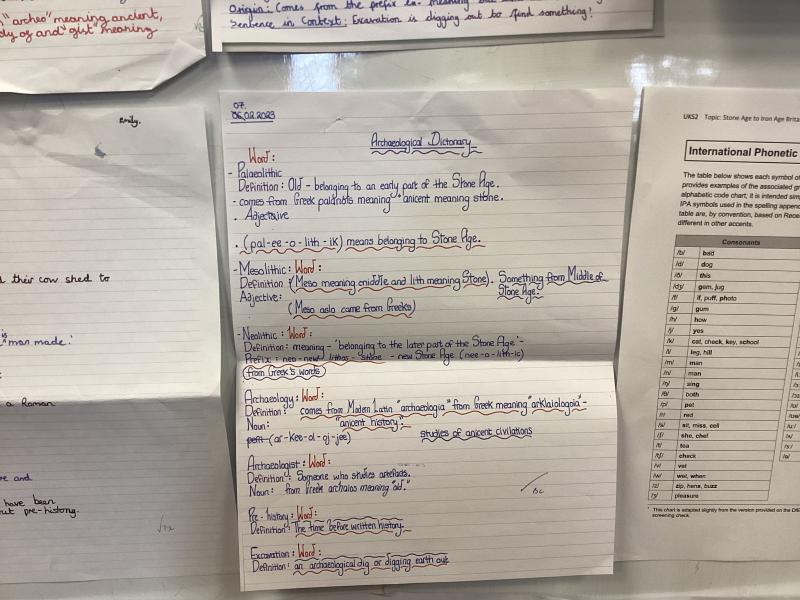 " archeo" meaning ancient,
dy of and "gist" meaning
Origin: Comes from the prefix ex- meaning
Sentence in Context: Excavation is digging out to find something!
Emily.
d their cow shed to
is
"man made."
a Roman
re and
have been
out pre-history.
07.
06.02.2023
Archaeological Dictonary
Word:
- Palaeolithic
Definition: Old - belonging to an early part of the Stone Age.
- comes from Greek palaiois meaning "anicent meaning stone.
. Adjective
. (pal-ee-o-lith-ik) means belonging to Stone Age.
- Mesolithic: Word:
Definition: (Meso meaning middle and lith meaning Stone). Something from Middle of
Stone Age.
Adjective:
(Meso aslo came from Greeks)
- Neolithic: Word:
Definition: meaning - 'belonging to the later part of the Stone Age'-
Prefix: neo-new lithos - stone - new Stone Age (nee-o-lith-ic)
(from Greek's words)
Archaeology: Word:
Definition: comes from Modern Latin "archaeologia" from Greek meaning "arklaiologoia"-
Noun: "anicent history".
(ar-kee-ol-oj-jee) studies of anicent civilations
Archaeologist: Word:
Definition: Someone who studies artefacts.
Noun: from Greek archaios meaning "old."
Pre-history: Word:
Definition: The time before written history.
Excavation: Word:
Definition: an archaeological dig or digging earth out
UKS2 Topic: Stone Age to Iron Age Brita
International Phonetic
The table below shows each symbol of
provides examples of the associated gr
alphabetic code chart; it is intended sim
IPA symbols used in the spelling append
table are, by convention, based on Rece
different in other accents.
Consonants
/b/ bad
/d/ dog
/ð/ this
/dʒ/ gem, jug
/f/ if, puff, photo
/g/ gum
/h/ how
/j/ yes
/k/ cat, check, key, school
/l/ leg, hill
/m/ man
/n/ man
/ŋ/ sing
/θ/ both
/p/ pet
/r/ red
/s/ sit, miss, cell
/ʃ/ she, chef
/t/ tea
/tʃ/ check
/v/ vet
/w/ wet, when
/z/ zip, hens, buzz
/ʒ/ pleasure
* This chart is adapted slightly from the version provided on the DfE
screening check.